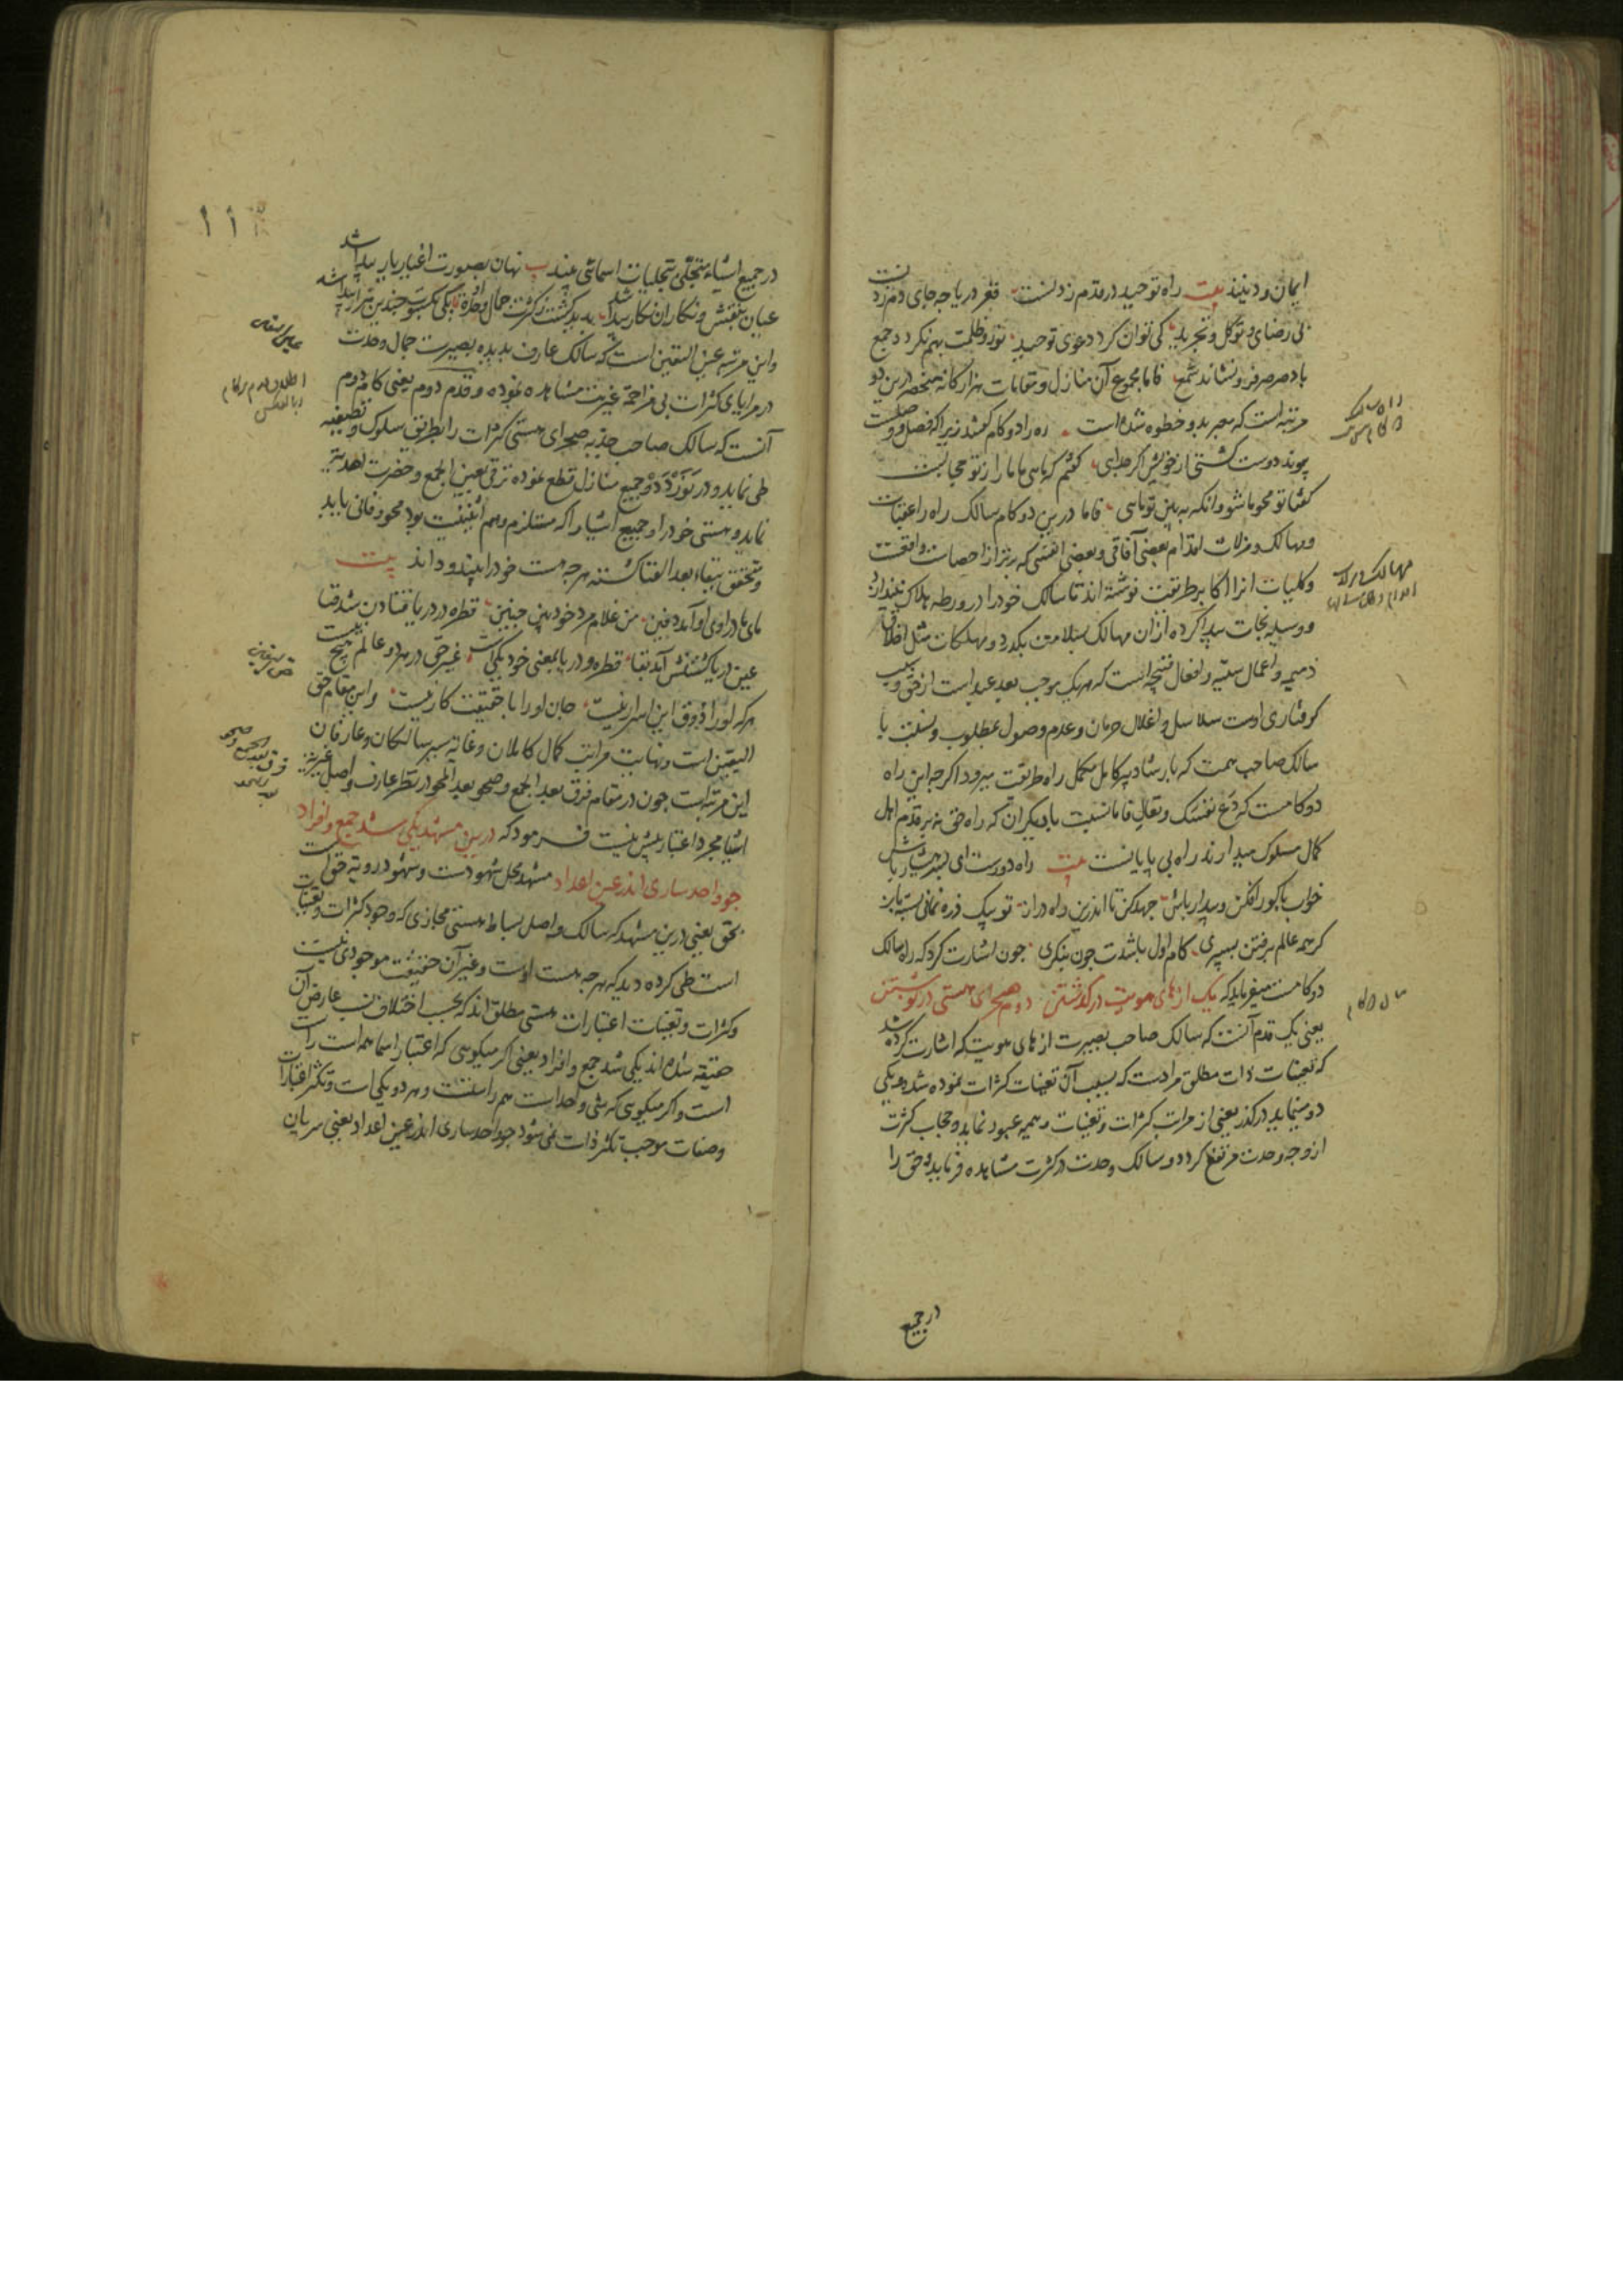 ایمان ودینند بیت راه توحید در قدم زدنست قعر دریا چه جای دم زدنست
بی رضای و توکل و تجرید کی توان کرد دعوی توحید نور و ظلمت بهم نکرد جمع
باد صرصر فرو نشاند شمع فاما مجموع آن منازل و مقامات هزار کانه منحصر درین دو
مرتبه است که معبر بدو خطوه شده است ره را دو کام کفتند زیرا که فصل و وصلست
پیوند دوست کشتی از خویش اکر جدایی کفتم که باسی ما ما را ز تو مجابست
کفتا تو محو ما شو وانکه به بین تو ماسی فاما درین دو کام سالک راه را عقبات
ومهالک ومزلات اقدام بعضی آفاقی و بعضی انفسی که برتر از احصاست واقعست
وکلیات انرا اکابر طریقت نوشته اند تا سالک خود را در ورطه هلاک نیندازد
و وسیله نجات پیدا کرده از ان مهالک بسلامت بکذرد و مهلکات مثل اخلاق
ذمیمه و اعمال سیئه و افعال قبیحه است که هریک موجب بعد عبد است از حق وسبب
کرفتاری اوست سلاسل و اغلال حرمان وعدم وصول بمطلوب و نسبت با
سالک صاحب همت که بارشاد پیر کامل مکمل راه طریقت میرود اکرچه این راه
دو کامست که دع نفسک وتعال فاما نسبت با دیکران که راه حق نه بر قدم اهل
کمال مسلوک میدارند راه بی پایانست بیت راه دورست ای پسر هشیار باش
خواب با کور افکن و بیدار باش جهد کن تا اندرین راه دراز تو بیک ذره نمانی بسته باز
کر همه عالم برفتن بسپری کام اول باشدت چون بنکری چون اشارت کرد که راه سالک
دو کامست میفرماید که یک از های هویت در کذشتن دوم صحرای هستی در نوشتن
یعنی یک قدم آنست که سالک صاحب بصیرت از های هویت که اشارت کرده شد
که تعینات ذات مطلق مرادست که بسبب آن تعینات کثرات نموده شده ویکی
دو مینماید در کذر یعنی از مراتب کثرات و تعینات وهمیه عبور نماید و حجاب کثرت
از وجه وحدت مرتفع کردد و سالک وحدت در کثرت مشاهده فرماید و حق را
در جمیع
دو کام
در جمیع اشیاء متجلی بتجلیات اسمائی بیند ب نهان بصورت اغیار یار پیدا شد
عیان بنقش و نکار ان نکار پیدا شد پدید کشت ز کثرت جمال وحدت او یکی بکسوت چندین هزار پیدا شد
واین مرتبه عین الیقین است که سالک عارف بدیده بصیرت جمال وحدت
در مرایای کثرات بی مزاحمت غیریت مشاهده نموده و قدم دوم یعنی کام دوم
آنست که سالک صاحب جذبه صحرای هستی کثرات را بطریق سلوک وتصفیه
طی نماید و در نوردد و جمیع منازل قطع نموده ترقی بعین الجمع و حضرت احدیت
نماید و هستی خود را و جمیع اشیا را که مستلزم وهم اثنینیت بود محو و فانی یابد
ومتحقق ببقاء بعد الفنا کشته هر چه هست خود را بیند و داند بیت
مای ما در اوی او آمد دفین من غلام مرد خود بین چنین قطره در دریا فتادن شد فنا
عین دریا کشتنش آمد بقا قطره و دریا بمعنی خود یکیست غیر حق در هر دو عالم هیچ نیست
هرکه او را ذوق این اسرار نیست جان او را با حقیقت کار نیست واین مقام حق
الیقین است و نهایت مراتب کمال کاملان و غایه سیر سالکان و عارفان
این مرتبه است چون در مقام فرق بعد الجمع و صحو بعد المحو در نظر عارف واصل غیریت
اشیا مجرد اعتبار بیش نیست فرمود که درین مشهد یکی شد جمع و افراد
چو واحد ساری اندر عین اعداد مشهد محل شهودست و شهود رویت حق است
بحق یعنی درین مشهد که سالک واصل بساط هستی مجازی که وجود کثرات وتعینات
است طی کرده دید که هر چه هست اوست و غیر آن حقیقت موجودی نیست
وکثرات و تعینات اعتبارات هستی مطلق اند که بحسب اختلاف نسب عارض آن
حقیقه شده اند یکی شد جمع و افراد یعنی اکر میکویی که اعتبار اسما همه است راست
است و اکر میکویی که شی واحد است هم راستست و هر دو یکی است و تکثر اعتبارات
وصفات موجب تکثر ذات نمی شود چو واحد ساری اندر عین اعداد یعنی سریان
عین الیقین
حق الیقین
فرق بعد الجمع وصحو
بعد المحو